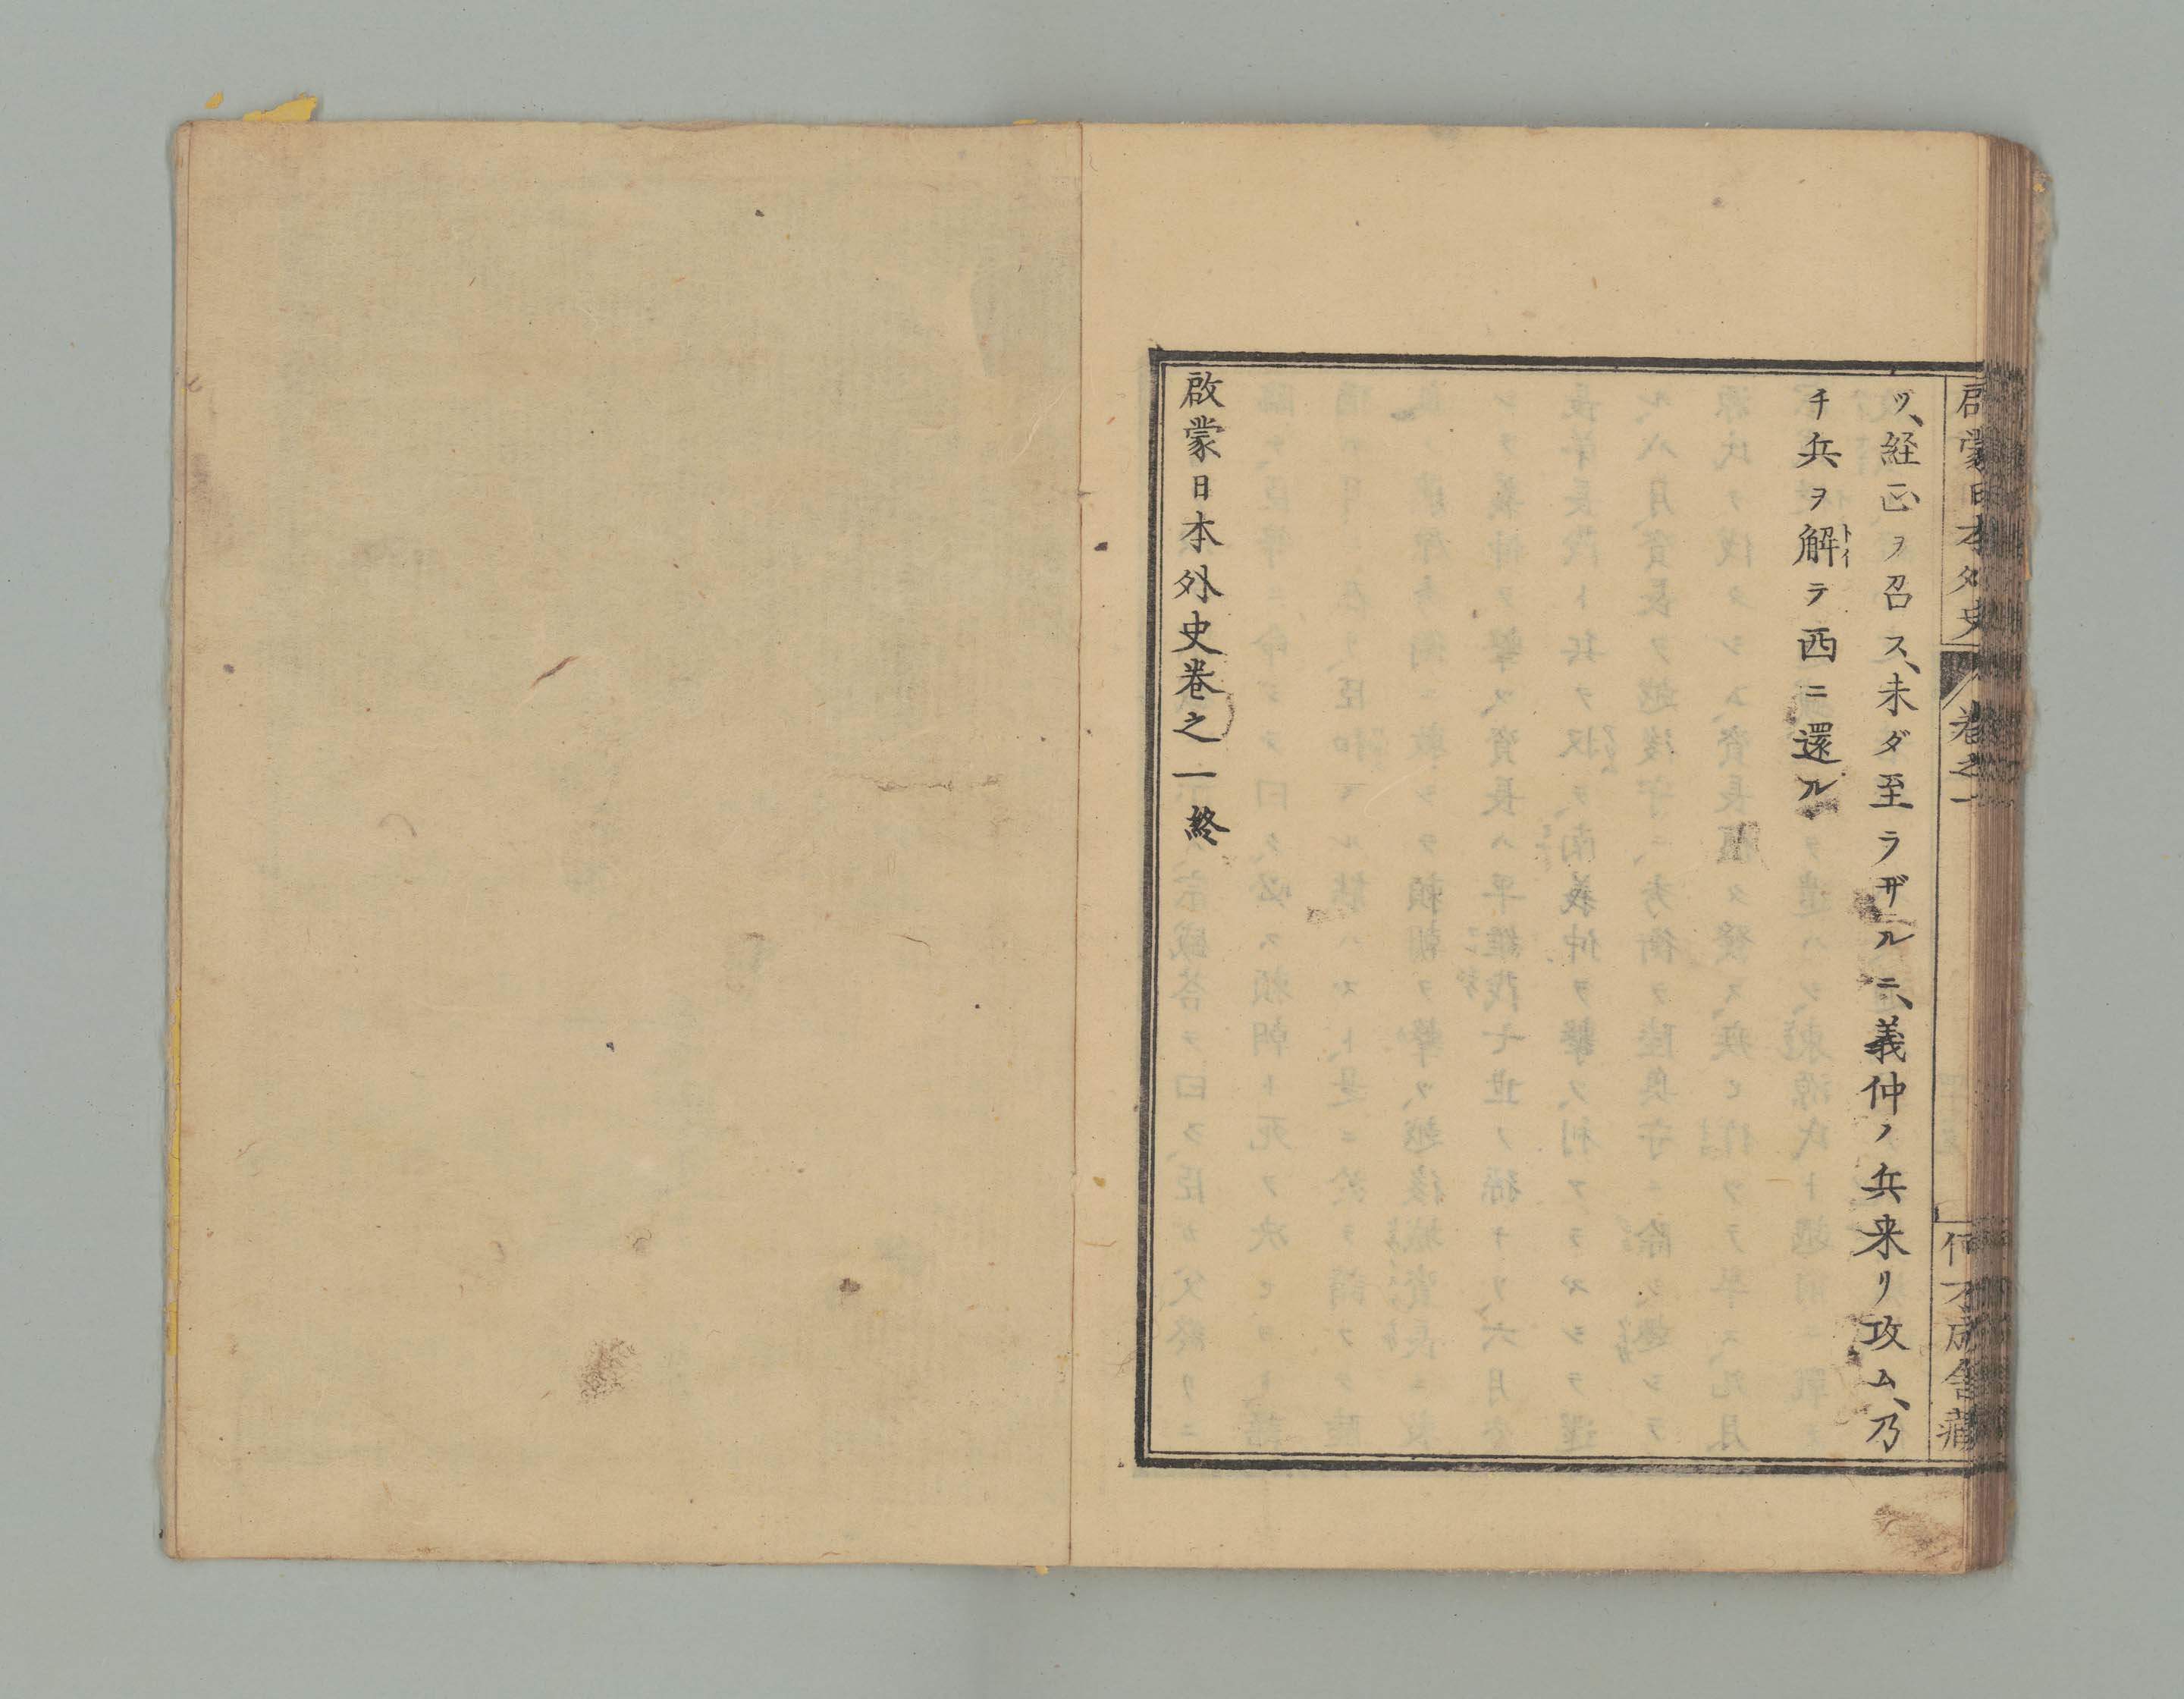 啟蒙日本外史 卷之一
ヅ、経正ヲ召ス、未ダ至ラザルニ、義仲ノ兵来リ攻ム、乃
チ兵ヲ解テ西ニ還ル
トイ
啟蒙日本外史卷之一終